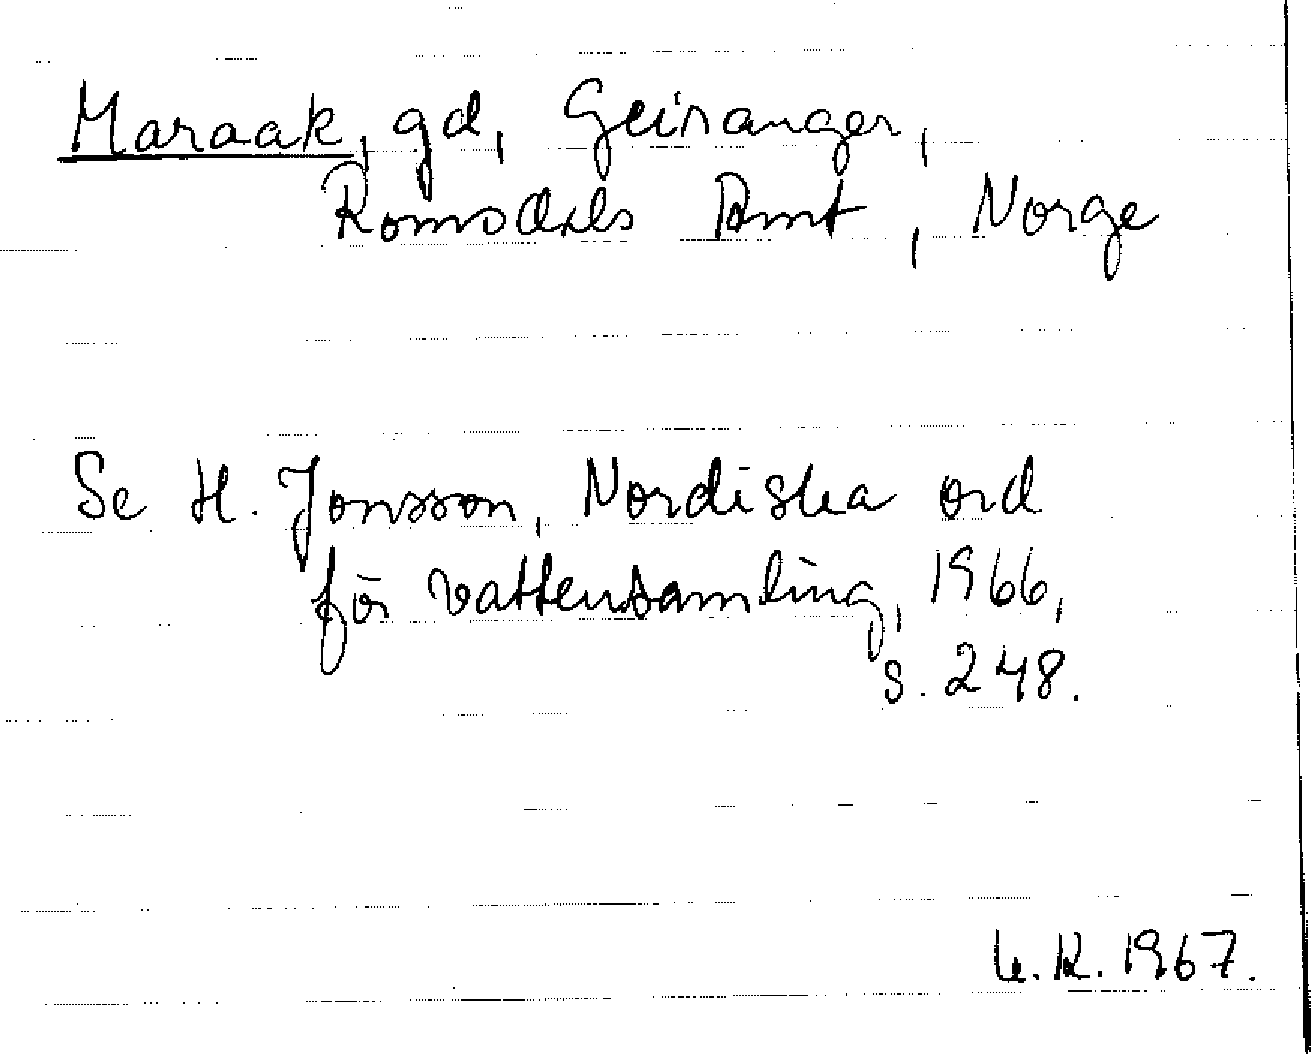 Maraak, gd, Geiranger,
Romsdals Amt, Norge
Se H. Jonsson, Nordiska ord
för vattensamling, 1966,
s. 248.
K. 1967.